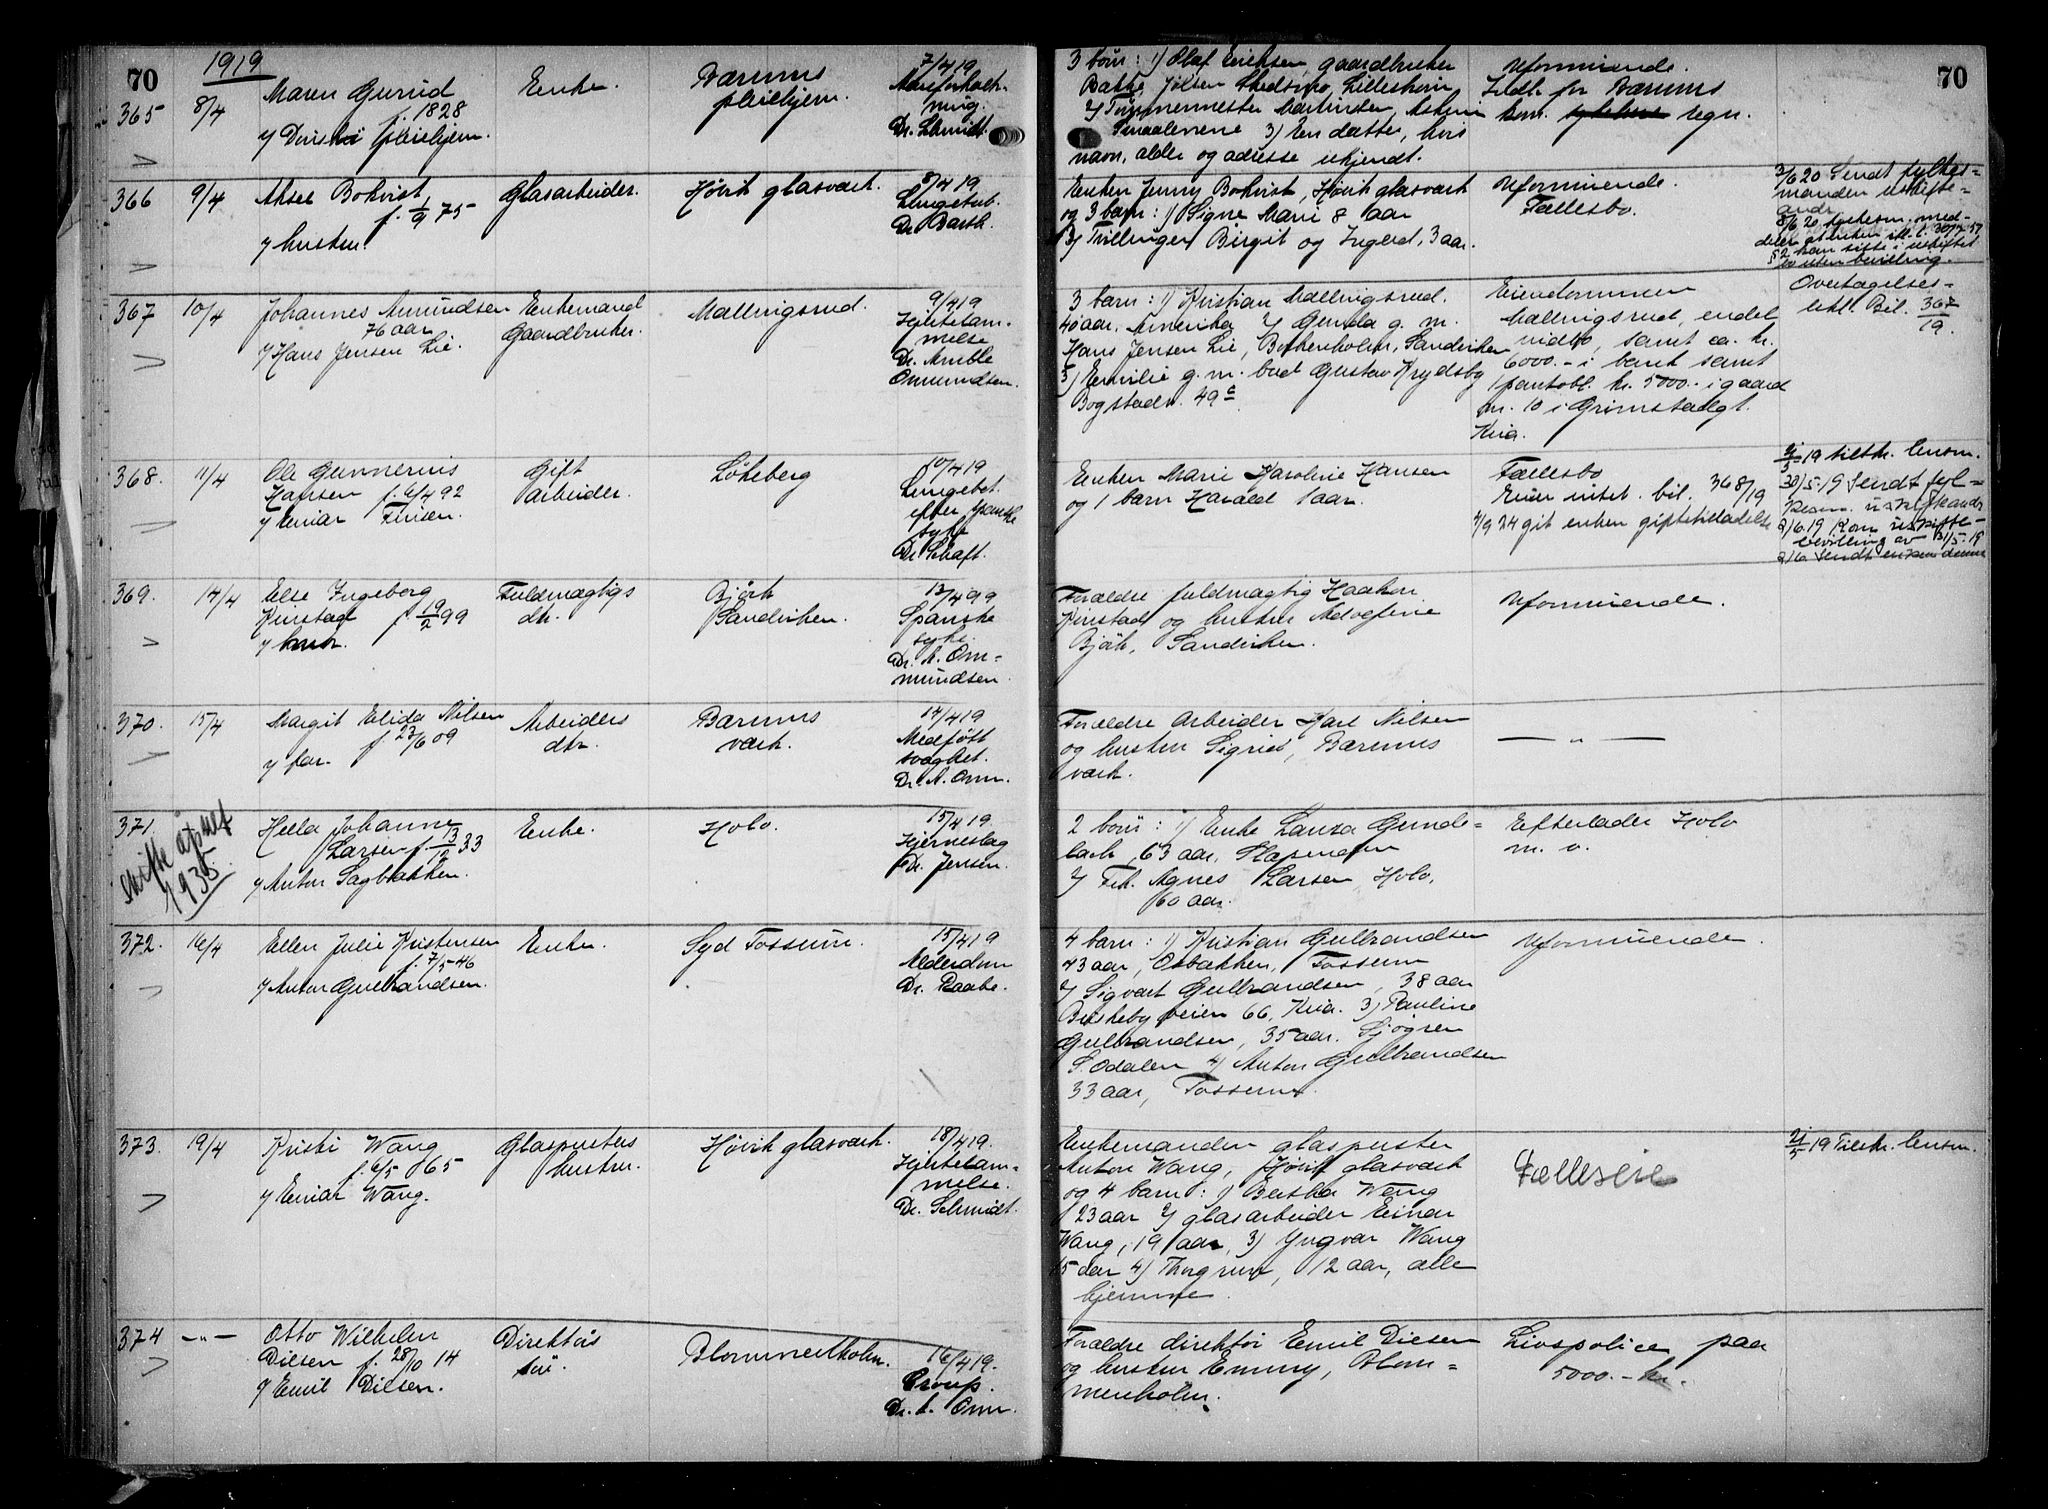 70
1919
365
8/4
Maren Gurud
f. 1828
Enke.
Bærums
pleiehjem.
7/4 19
Dr. Schmidt.
3 barn: 1) Olaf Eriksen, gaardbruker
Skedsmo, Lillestrøm
Smaalenene 3) En datter, hvis
navn, alder og adresse ukjendt.
Uformuende.
for Bærums
kom. regn.
70
366
9/4
Aksel Bokvist
f. 1/9 75
v/ hustru.
Glasarbeider.
Høvik glasværk.
8/4 19
Lungetub.
Dr. Barth.
Enken Jenny Bokvist, Høvik glasværk
og 3 barn: 1) Signe Marie 8 aar
2/ Tvillinger Birgit og Ingerd, 3 aar.
Uformuende.
Fællesbo.
3/6 20 Sendt fylkes=
manden uskifte=
andr.
§ 2 kan sitte i uskiftet
bo uten bevilling.
367
10/4
Johannes Amundsen
76 aar
v/ Hans Jensen Lie.
Enkemand
Gaardbruker.
Mallingsrud.
9/4 19
Hjertelam-
melse
Dr. Amble
Ommundsen.
3 barn: 1) Kristian Mallingsrud.
40 aar. Amerika 2/ Gunda g. m.
Hans Jensen Lie, Sandviken
3) Emilie g. m. bud Gustav Krydsby
Bogstadv. 49 c
Eiendommen
Mallingsrud, endel
indbo, samt ca. kr.
6000.- i bank samt
1 pantobl. kr. 5000.- i gaard
nr. 10 i Grimstadgt.
Kria.
Overtagelses-
tekl. Bil. 367/19.
368.
11/4
Ole Gunnerius
Hansen f. 6/4 92
v/ Einar Finsen.
Gift
arbeider.
Løkeberg
10/4 19
Lungebet.
efter spanske
syke
Dr. Schaft.
Enken Marie Karoline Hansen
og 1 barn Harald 1 aar.
Fællesbo
Eier intet. bil. 368/19
4/9 24 git enken giftetilladelse
5 19 tilskr. lensm.
30/5. 19 Sendt fyl=
2/6. 19 Kom uskifte-
bevilling av 31/5. 19
2/6. Sendt enken denne
369.
14/4
Else Ingeborg
Kinstad f 19/2 99
Fuldmægtigs
dtr.
Bjørk
Sandviken.
13/4 99
Spanske
syke.
Dr. A. Om=
mundsen.
Forældre fuldmægtig Haakon
Kinstad og hustru Advogine
Bjørk, Sandviken.
Uformuende.
370.
15/4
Margit Elida Nilsen
f. 23/6 09
v/ far.
Arbeiders
dtr.
Bærums
værk.
14/4 19
Medføtt
svaghet.
Dr. A. Omm.
Forældre Arbeider Karl Nilsen
og hustru Sigrid, Bærums
værk.
— " —
371.
Skifte åpnet
1935
Hella Johanne
Larsen f. 13/12 33
v/ Anton Sagbakken.
Enke.
Holo.
15/4 19.
Hjerneslag
Dr. Jensen.
2 barn: 1) Enke Laura Gunde=
63 aar, Slependen
2/ Frk. Agnes Larsen Holo,
60 aar.
Efterlader Holo
m. v.
372.
16/4
Ellen Julie Kristensen
f. 7/5 46
v/ Anton Gulbrandsen.
Enke.
Syd Tossum.
15/4 19
Alderdom
Dr. Raabe.
4 barn: 1) Kristian Gulbrandsen
43 aar, Osbakken, Fossum
2/ Sigvart Gulbrandsen, 38 aar
Briskebyveien 66, Kria. 3) Pauline
Gulbrandsen, 35 aar. Sjøgren
S. Odalen 4) Anton Gulbrandsen
33 aar, Fossum.
Uformuende.
373.
19/4
Kristi Wang
f. 6/5 65
v/ Einar Wang.
Glaspusters
hustru.
Høvik glasværk.
18/4 19.
Hjertelam-
melse.
Dr. Schmidt.
Enkemanden glaspuster
Anton Wang, Høvik glasværk
og 4 barn: 1) Bertha Wang
23 aar 2/ glasarbeider Einar
Wang, 19 aar, 3) Yngvar Wang
15 aar 4) Thorgrim, 12 aar, alle
hjemme.
Fælleseie
21/5 19 Tilskr. lensm.
374
— " —
Otto Wilhelm
Diesen f. 28/10 14
v/ Emil Diesen.
Direktørs
søn.
Blommenholm.
16/4 19.
Croup.
Dr. A. Omm.
Forældre direktør Emil Diesen
og hustru Emmy, Blom=
menholm.
Livspolice paa
5000.- kr.